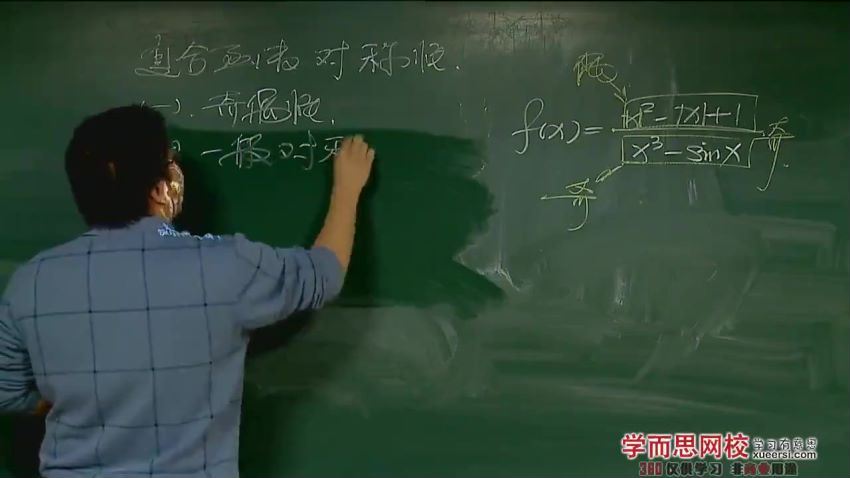 复合函数 对称性.
(一). 奇偶性.
一般 对 称
偶
f(x) = x² - |x| + 1 / x³ - sinx
奇
奇
学而思网校 学习有意思
xueersi.com
360 仅供学习 非商业用途